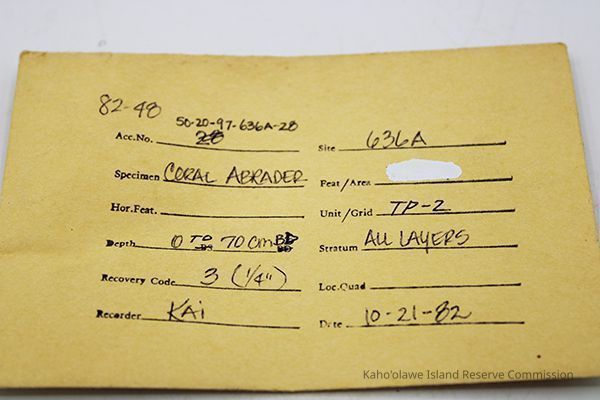 82-48
50-20-97-636A-28
Acc.No. 28 Site 636A
Specimen CORAL ABRADER Feat/Area
Hor.Feat. Unit/Grid TP-2
Depth 0 TO 70 cm BD Stratum ALL LAYERS
Recovery Code 3 (1/4") Loc.Quad
Recorder KAI Date 10-21-82
Kaho'olawe Island Reserve Commission